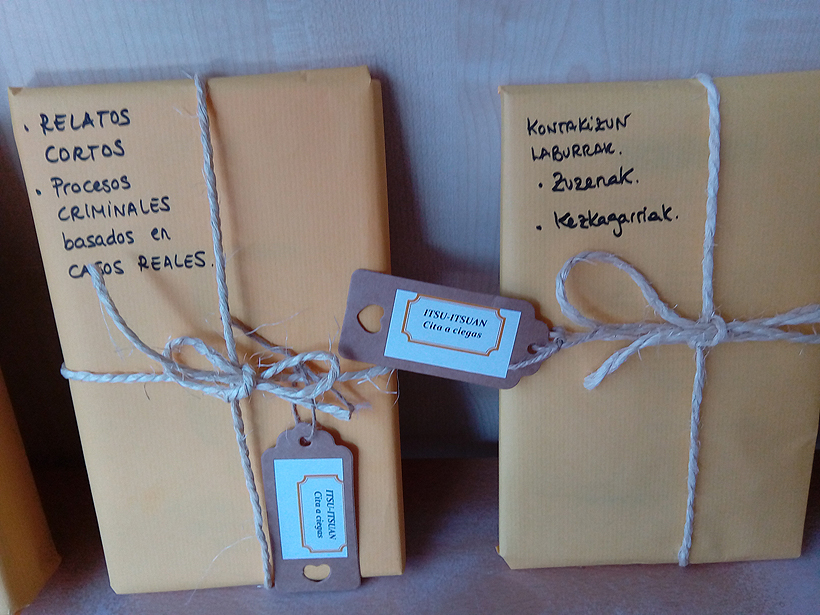 • RELATOS
CORTOS
• Procesos
CRIMINALES
basados en
CASOS REALES.
ITSU-ITSUAN
Cita a ciegas
KONTAKIZUN
LABURRAK.
• Zuzenak.
• Kezkagarriak.
ITSU-ITSUAN
Cita a ciegas